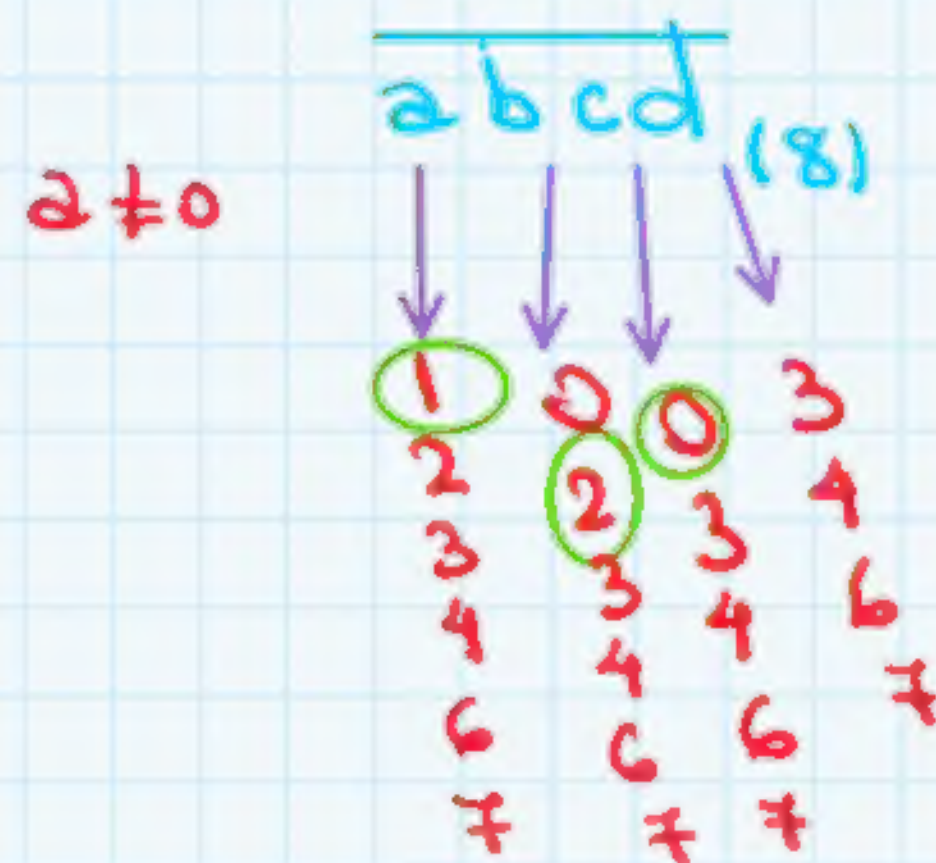 abcd (8)
a ≠ 0
1 0 0 3
2 2 3 4
3 3 4 6
4 4 6 7
6 6 7
7 7